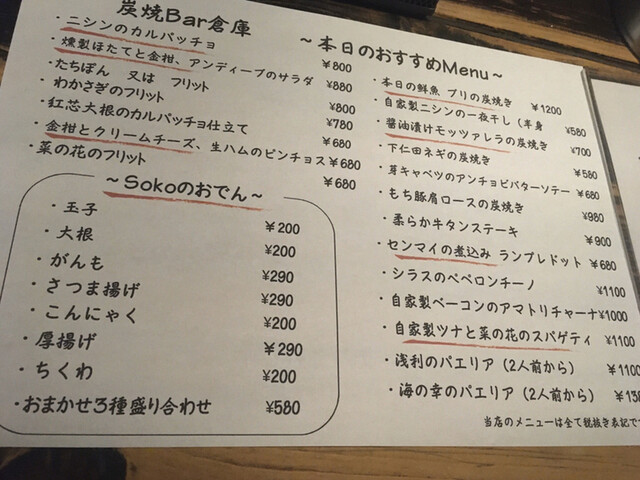 炭焼Bar倉庫
～本日のおすすめMenu～
・ニシンのカルパッチョ ¥800
・燻製ほたてと金柑、アンディーブのサラダ ¥880
・たちぽん 又は フリット ¥800
・わかさぎのフリット ¥780
・紅芯大根のカルパッチョ仕立て ¥680
・金柑とクリームチーズ、生ハムのピンチョス ¥680
・菜の花のフリット ¥680
～Sokoのおでん～
・玉子 ¥200
・大根 ¥200
・がんも ¥290
・さつま揚げ ¥290
・こんにゃく ¥200
・厚揚げ ¥290
・ちくわ ¥200
・おまかせ3種盛り合わせ ¥580
・本日の鮮魚 ブリの炭焼き ¥1200
・自家製ニシンの一夜干し（半身 ¥580
・醤油漬けモッツァレラの炭焼き ¥700
・下仁田ネギの炭焼き ¥580
・芽キャベツのアンチョビバターソテー ¥680
・もち豚肩ロースの炭焼き ¥980
・柔らか牛タンステーキ ¥900
・センマイの煮込み ランプレドット ¥680
・シラスのペペロンチーノ ¥1100
・自家製ベーコンのアマトリチャーナ ¥1000
・自家製ツナと菜の花のスパゲティ ¥1100
・浅利のパエリア（2人前から） ¥1100
・海の幸のパエリア（2人前から）
当店のメニューは全て税抜き表記で